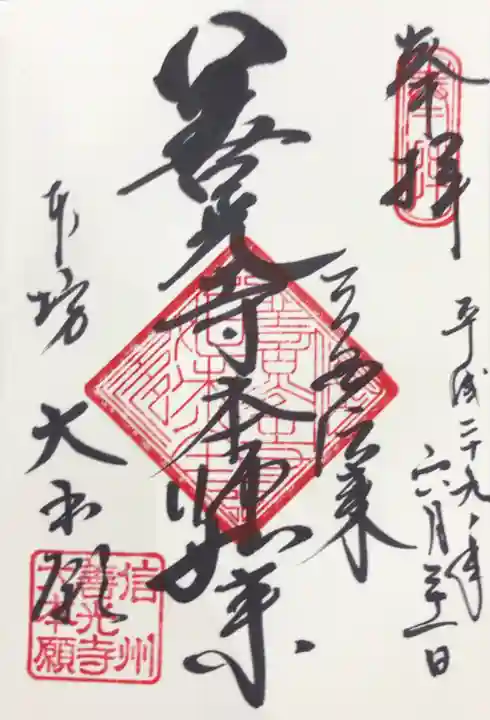 奉拝
平成二十九年
六月二十一日
善光寺本師如来
本坊 大本願
信州
善光寺
大本願